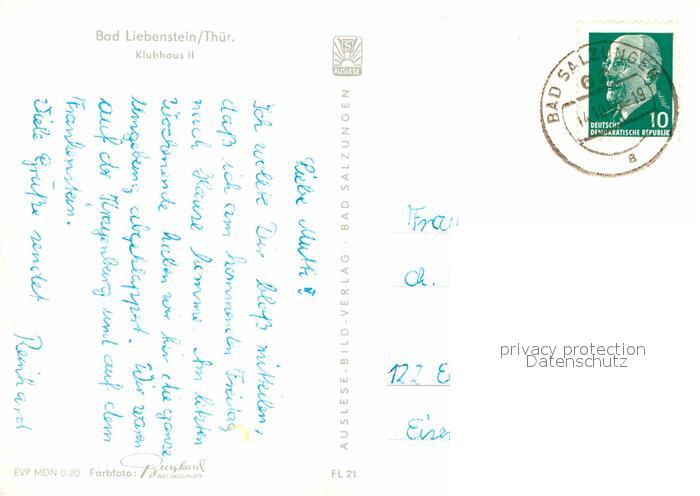 Bad Liebenstein/Thür.
Klubhaus II
Liebe Mutti!
Ich wollte Dir bloß mitteilen,
daß ich am kommenden Freitag
nach Hause komme. Am letzten
Wochenende haben wir hier die ganze
Umgebung abgeklappert. Wir waren
auf der Krayenburg und auf dem
Frankenstein.
Viele Grüße sendet Reinhard
EVP MDN 0.20 Farbfoto:
BAD SALZUNGEN
S
AUSLESE
AUSLESE-BILD-VERLAG · BAD SALZUNGEN
FL 21
BAD SALZUNGEN
a
10
DEUTSCHE
DEMOKRATISCHE REPUBLIK
Frau
ch.
122 E
Eisen
privacy protection
Datenschutz